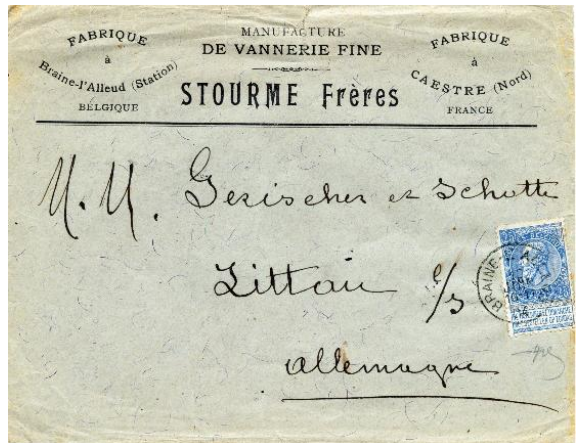 FABRIQUE
à
Braine-l'Alleud (Station)
BELGIQUE
MANUFACTURE
DE VANNERIE FINE
STOURME Frères
FABRIQUE
à
CAESTRE (Nord)
FRANCE
M. M. Gerischer et Schotte
Zittau e/s
Allemagne
BRAINE-L'A